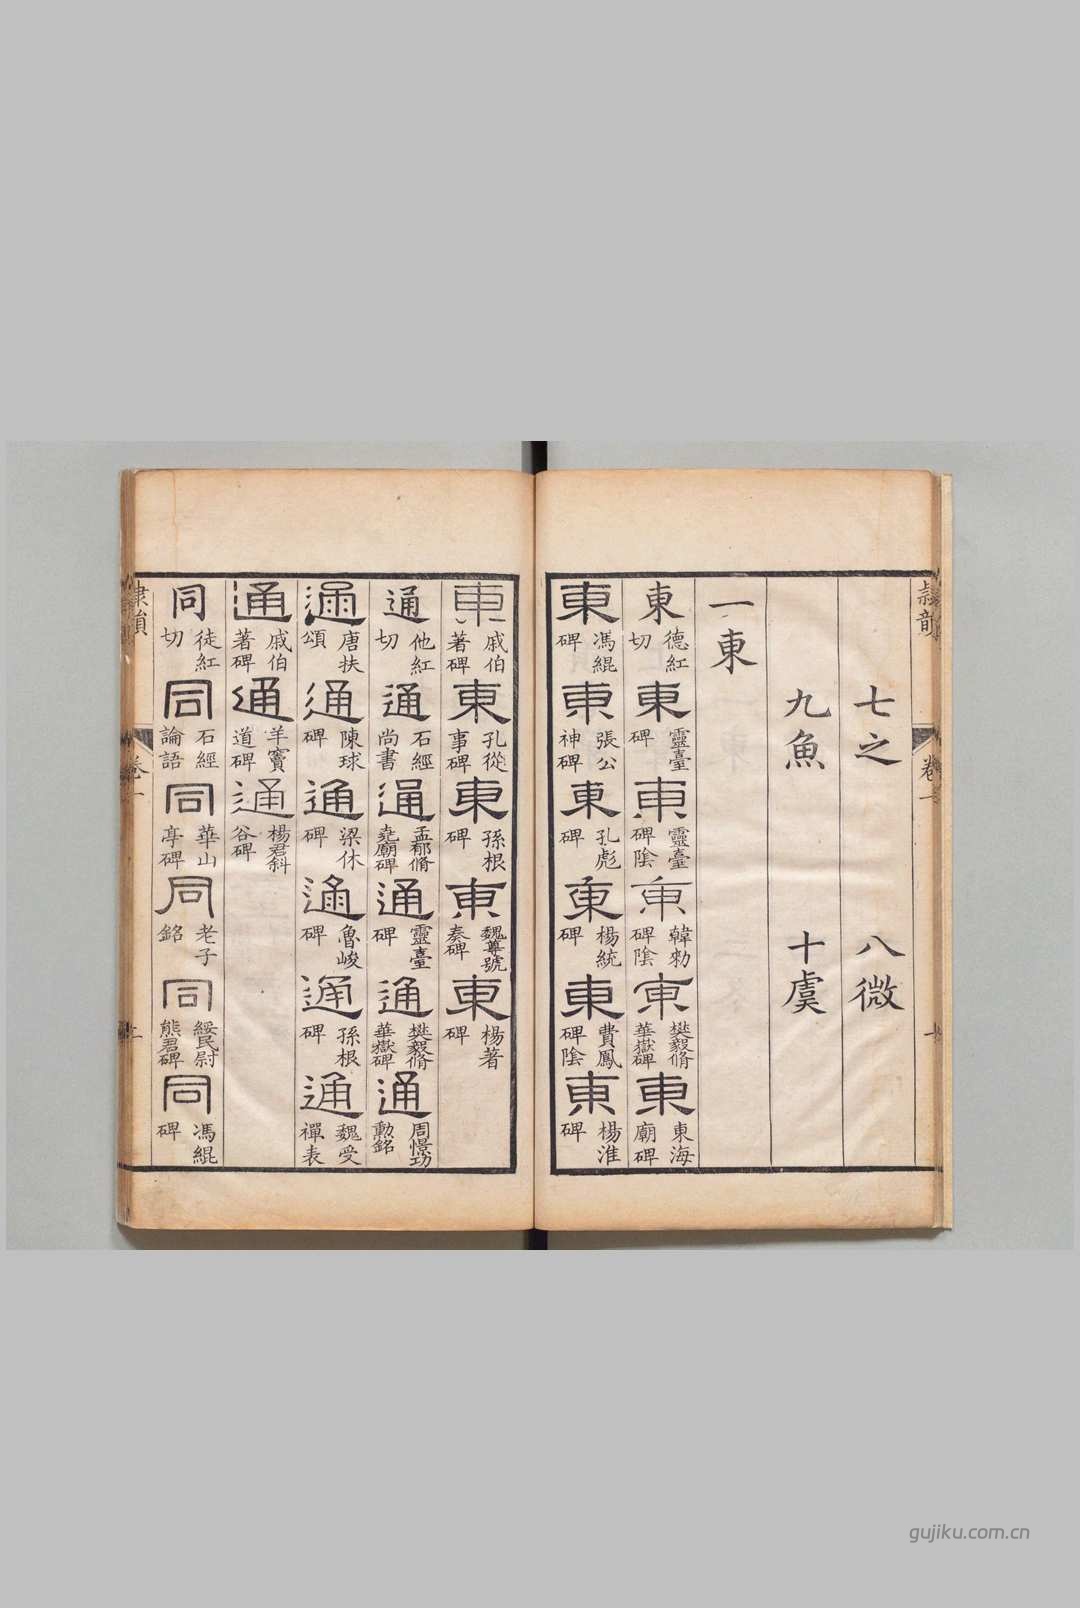 隸韻 卷一
七之 八微
九魚 十虞
一東
東 德紅切 東 靈臺碑 東 靈臺碑陰 東 韓勑碑陰 東 樊毅脩華嶽碑 東 東海廟碑
東 馮緄碑 東 張公神碑 東 孔彪碑 東 楊統碑 東 費鳳碑陰 東 楊淮碑
東 戚伯著碑 東 孔從事碑 東 孫根碑 東 魏尊號奏碑 東 楊著碑
通 他紅切 通 石經尚書 通 孟郁脩堯廟碑 通 靈臺碑 通 樊毅脩華嶽碑 通 周憬功勲銘
通 唐扶頌 通 陳球碑 通 梁休碑 通 魯峻碑 通 孫根碑 通 魏受禪表
通 戚伯著碑 通 羊竇道碑 通 楊君斜谷碑
同 徒紅切 同 石經論語 同 華山亭碑 同 老子銘 同 綏民尉熊君碑 同 馮緄碑
隸韻 卷一
gujiku.com.cn